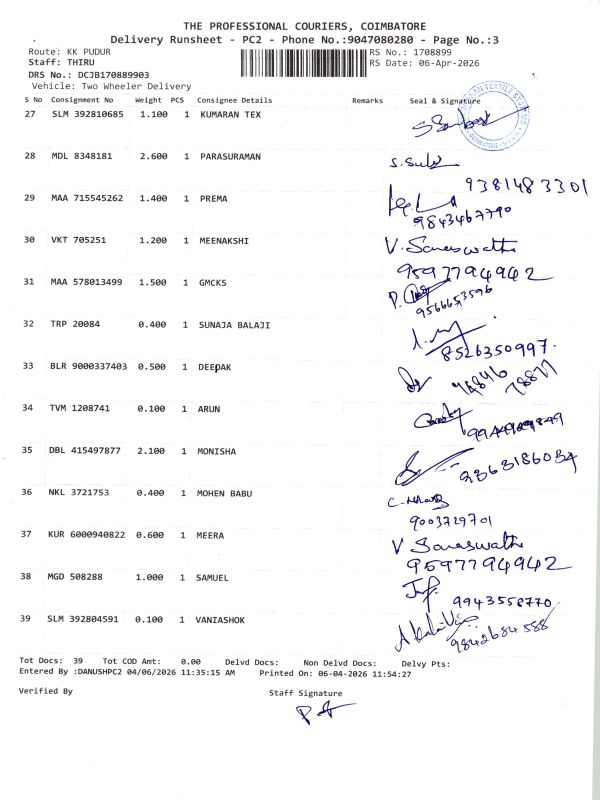 THE PROFESSIONAL COURIERS, COIMBATORE
Delivery Runsheet - PC2 - Phone No.:9047080280 - Page No.:3
Route: KK PUDUR RS No.: 1708899
Staff: THIRU RS Date: 06-Apr-2026
DRS No.: DCJB170889903
Vehicle: Two Wheeler Delivery
S No Consignment No Weight PCS Consignee Details Remarks Seal & Signature
27 SLM 392810685 1.100 1 KUMARAN TEX
28 MDL 8348181 2.600 1 PARASURAMAN
9381483301
29 MAA 715545262 1.400 1 PREMA
9843467790
30 VKT 705251 1.200 1 MEENAKSHI V. Saraswathi
9597794942
31 MAA 578013499 1.500 1 GMCKS
9566653596
32 TRP 20084 0.400 1 SUNAJA BALAJI
8526350997.
33 BLR 9000337403 0.500 1 DEEPAK
34 TVM 1208741 0.100 1 ARUN
35 DBL 415497877 2.100 1 MONISHA
9363186034
36 NKL 3721753 0.400 1 MOHEN BABU
9003729701
37 KUR 6000940822 0.600 1 MEERA V Saraswathi
9597794942
38 MGD 508288 1.000 1 SAMUEL
9943558770
39 SLM 392804591 0.100 1 VANIASHOK
9842684588
Tot Docs: 39 Tot COD Amt: 0.00 Delvd Docs: Non Delvd Docs: Delvy Pts:
Entered By :DANUSHPC2 04/06/2026 11:35:15 AM Printed On: 06-04-2026 11:54:27
Verified By Staff Signature